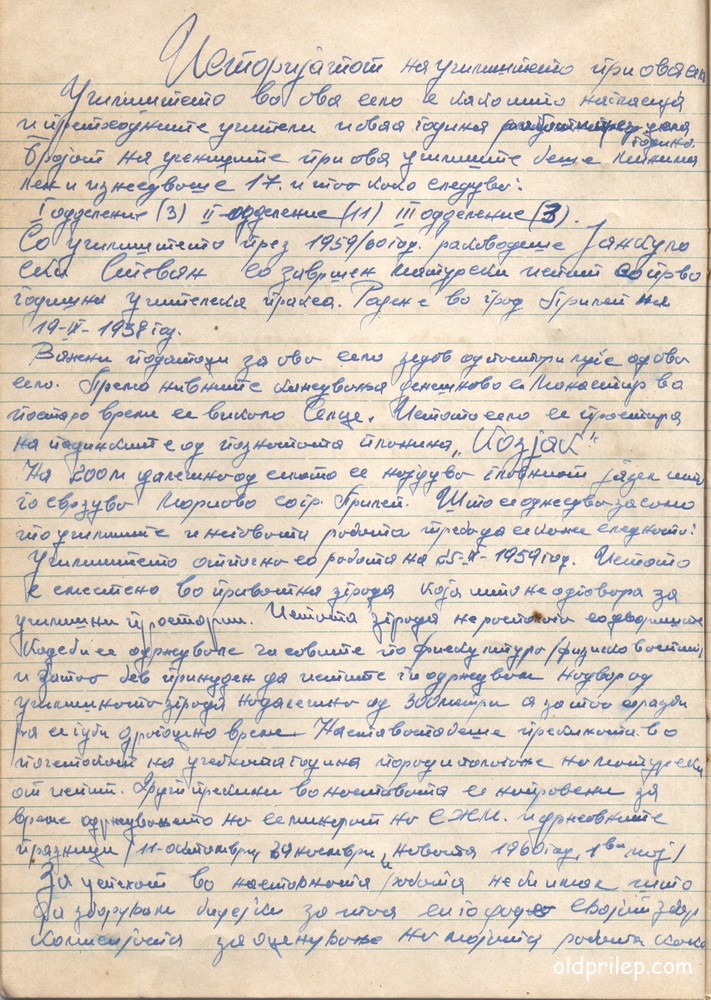 Историјатот на училиштето при ова село
Училиштето во ова село е како што
и претходните учители и оваа година
година.
Бројот на учениците при ова училиште беше минима
лен и изнесуваше 17. и тоа како следува:
I одделение (3) II одделение (11) III одделение (3).
Со училиштето през 1959/60 год. раководеше Јанкуло
ски Стеван со завршен матурски испит со прво
годишна учителска пракса. Роден е во град Прилеп на
19-II-1938 год.
Важни податоци за ово село зедов од постари луѓе од ово
село. Према нивните кажувања денешново с. Манастир во
постаро време се викало Селце. Истото село се простира
на падинките од познатата планина „Козјак“
На 200 м далечно од селото се најдува главниот
го сврзува Мариово со гр. Прилеп. Што се однесува за само
то училиште и неговата работа треба да се каже следното:
Училиштето отпочна со работа на 25-II-1959 год. Истото
е сместено во приватна зграда која што не одговара за
училишни простории. Истата зграда не располага со дворишце
каде би се одржувале часовите по фискултура /физичко
и затоа бев принуден да истите ги одржувам надвор од
училишната зграда на далечина од 300 метри а за тоа
се губи драгоцено време. Наставата беше прекината во
почетокот на учебната година поради полагање на матурски
от испит. Други прекини во наставата се направени за
време одржувањето на семинарот на С.Ж.М. и државните
празници /11-октомври, 29 ноември, новата 1960 год, 1ви мај/
За успехот во наставната работа не би имал нишо
да зборувам бидејќи за тоа си го даде својот збор
комисијата за оценување на мојата работа како
oldprilep.com